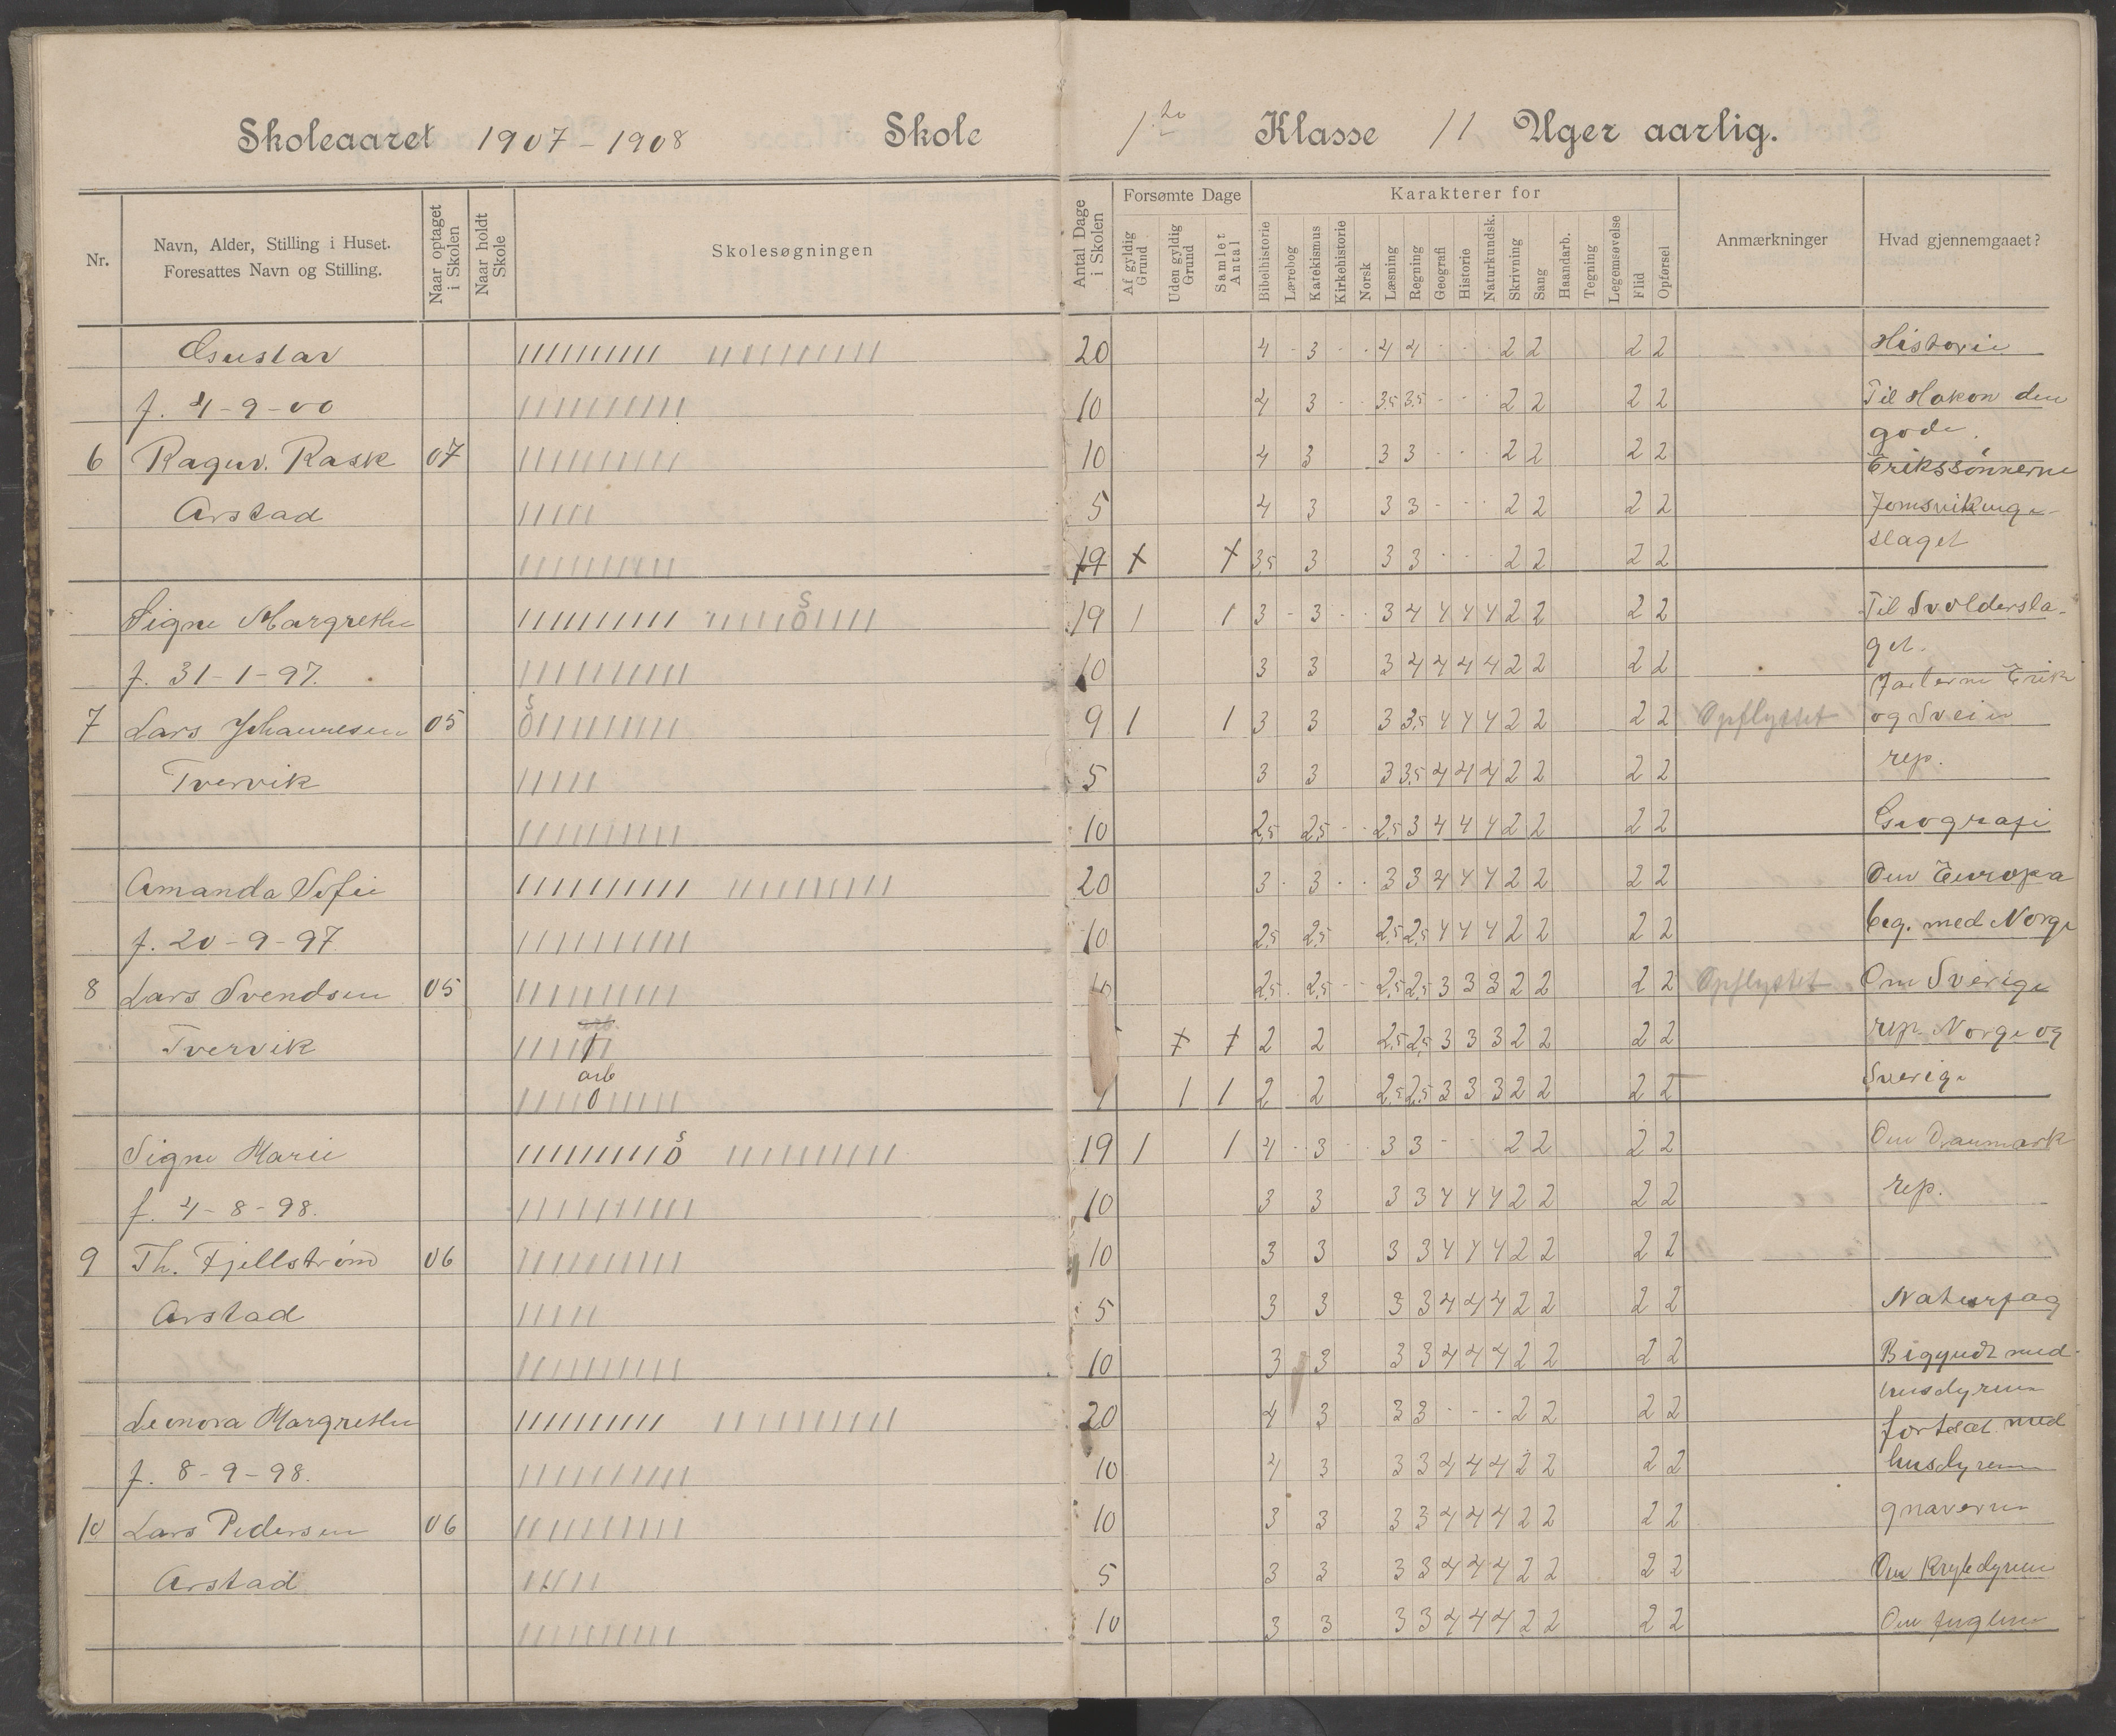 Skoleaaret 1907-1908 Skole 1ste Klasse 11 Uger aarlig.
Nr. | Navn, Alder, Stilling i Huset. Foresattes Navn og Stilling. | Naar optaget i Skolen | Naar holdt Skole | Skolesøgningen | Antal Dage i Skolen | Forsømte Dage | Af gyldig Grund | Uden gyldig Grund | Samlet Antal | Karakterer for | Bibelhistorie | Lærebog | Katekismus | Kirkehistorie | Norsk | Læsning | Regning | Geografi | Historie | Naturkundsk. | Skrivning | Sang | Haandarb. | Tegning | Legemsøvelse | Flid | Opførsel | Anmærkninger | Hvad gjennemgaaet?
Gustav ////////// ////////// 20 4 - 3 - - 4 4 - - - 2 2 2 2 Historie
f. 4-9-00 ////////// 10 4 3 - - 3,5 3,5 - - - 2 2 2 2 Til Hakon den
gode.
6 Ragnv. Rask 07 ////////// 10 4 3 3 3 - - - 2 2 2 2 Erikssønnerne
Arstad ///// 5 4 3 3 3 - - - 2 2 2 2 Jomsvikinge-
////////// 3,5 3 3 3 - - - 2 2 2 2 slaget
Signe Margrethe ////////// /////0//// s 19 1 1 3 - 3 - - 3 4 4 4 4 2 2 2 2 Til Svoldersla-
get.
f. 31-1-97. ////////// 10 3 3 3 4 4 4 4 2 2 2 2 Jarlerne Erik
7 Lars Johannesen 05 s 0///////// 9 1 1 3 3 3 3,5 4 4 4 2 2 2 2 Opflyttet og Svein
Tvervik ///// 5 3 3 3 3,5 4 4 4 2 2 2 2 rep.
////////// 10 2,5 2,5 - - 2,5 3 4 4 4 2 2 2 2 Geografi
Amanda Sofie ////////// ////////// 20 3 - 3 - - 3 3 4 4 4 2 2 2 2 Om Europa
f. 20-9-97 ////////// 10 2,5 2,5 2,5 2,5 4 4 4 2 2 2 2 beg. med Norge
8 Lars Svendsen 05 ////////// 2,5 - 2,5 - - 2,5 2,5 3 3 3 2 2 2 2 Opflyttet Om Sverige
Tvervik 2 2 2,5 2,5 3 3 3 2 2 2 2 rep. Norge og
arb /////0///// 1 1 2 2 2,5 2,5 3 3 3 2 2 2 2 Sverige
Signe Marie /////////0 s ////////// 19 1 1 4 - 3 - - 3 3 - - 2 2 2 2 Om Danmark
f. 4-8-98. ////////// 10 3 3 3 3 4 4 4 2 2 2 2 rep.
9 Th. Fjellstrøm 06 ////////// 10 3 3 3 3 4 4 4 2 2 2 2
Arstad ///// 5 3 3 3 3 4 4 4 2 2 2 2 Naturfag
////////// 10 3 3 3 3 4 4 4 2 2 2 2 Begyndt med
husdyrene
Leonora Margrethe ////////// ////////// 20 4 3 3 3 - - - 2 2 2 2 fortsat med
f. 8-9-98. ////////// 10 4 3 3 3 4 4 4 2 2 2 2 husdyrene
10 Lars Pedersen 06 ////////// 10 3 3 3 3 4 4 4 2 2 2 2 gnaverne
Arstad ///// 5 3 3 3 3 4 4 4 2 2 2 2 Om Krybdyrene
////////// 10 3 3 3 3 4 4 4 2 2 2 2 Om fuglene